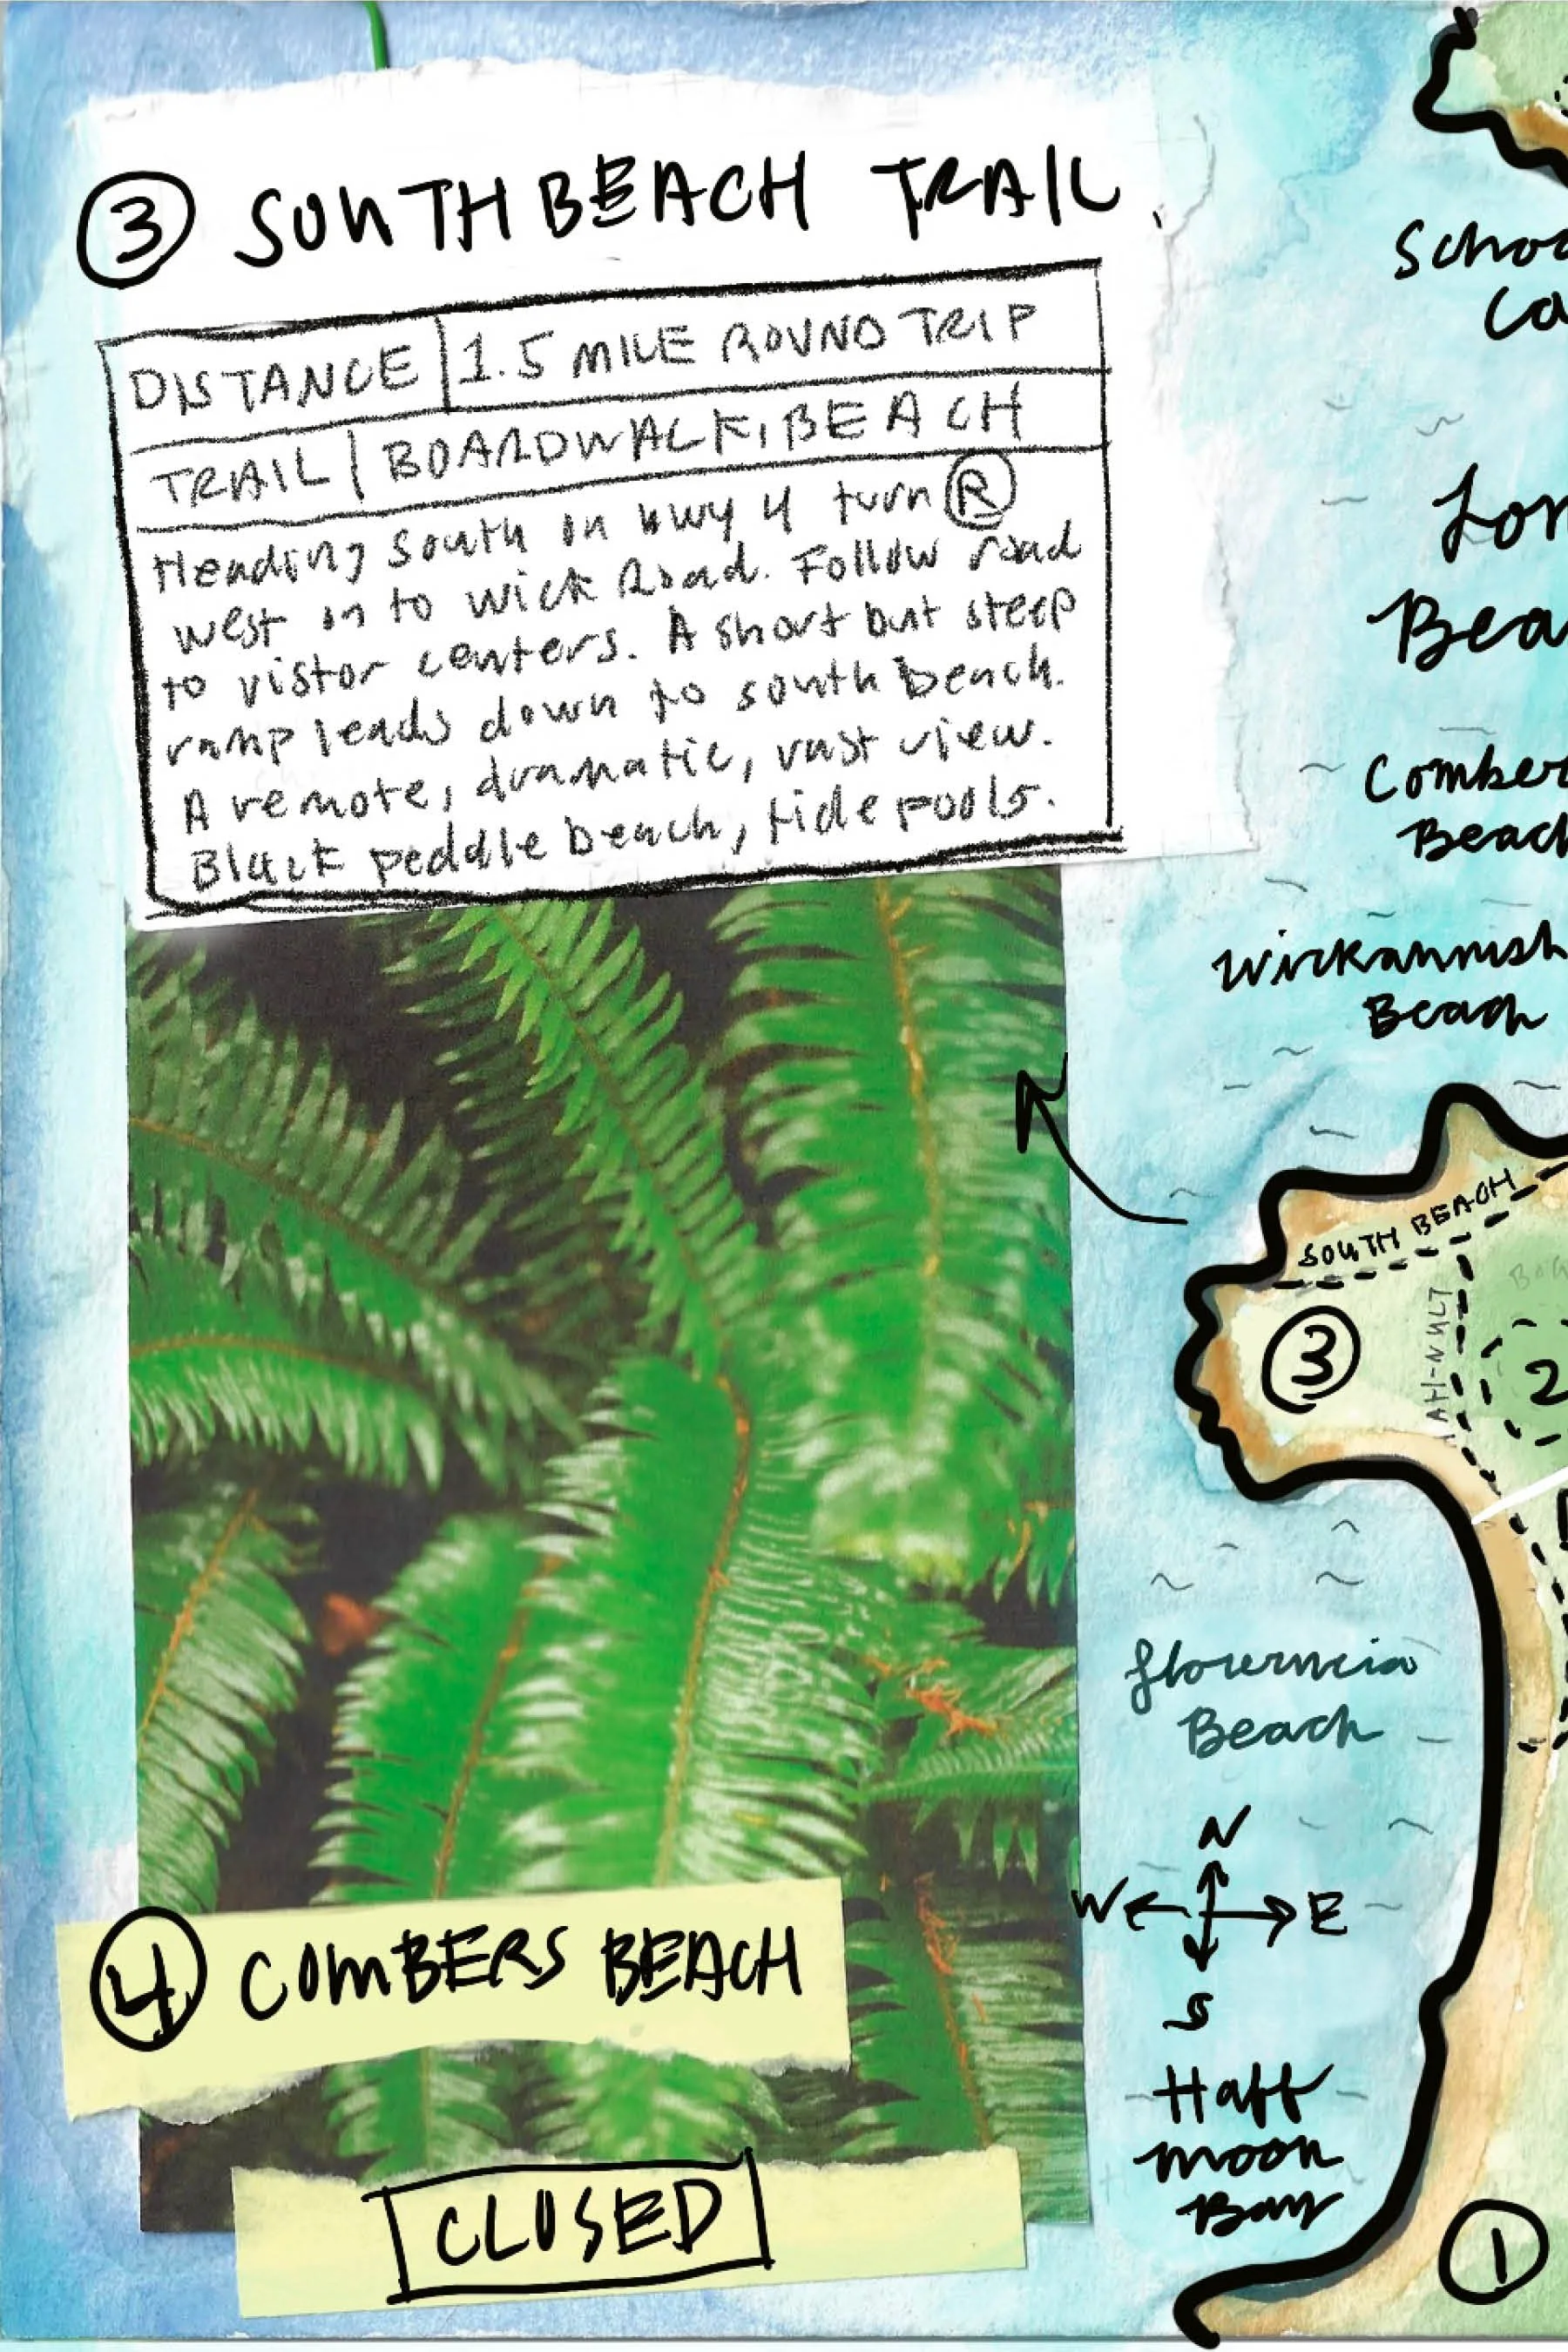 3 SOUTH BEACH TRAIL
DISTANCE | 1.5 MILE ROUND TRIP
TRAIL | BOARDWALK, BEACH
Heading South on hwy 4 turn R
west on to Wick Road. Follow road
to vistor centers. A short but steep
ramp leads down to south beach.
A remote, dramatic, vast view.
Black peddle beach, tide pools.
4 COMBERS BEACH
CLOSED
Beach
Wickannish
Beach
SOUTH BEACH
3
2
Beach
N
W E
S
Half
moon
Bay
1